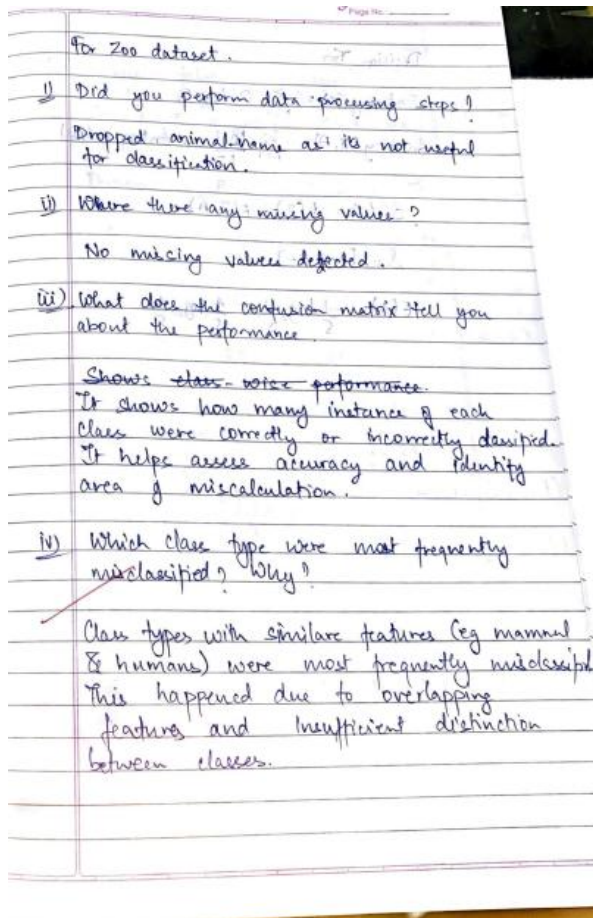 Page No.
For Zoo dataset.
i) Did you perform data processing steps?
Dropped animal-name as its not useful
for classification.
ii) Where there any missing values?
No missing values detected.
iii) What does the confusion matrix tell you
about the performance.
Shows class-wise performance.
It shows how many instance of each
class were correctly or incorrectly classified.
It helps assess accuracy and identify
area of miscalculation.
iv) Which class type were most frequently
misclassified? Why?
Class types with similare features (eg mammal
& humans) were most frequently
This happened due to overlapping
features and Insufficient distinction
between classes.